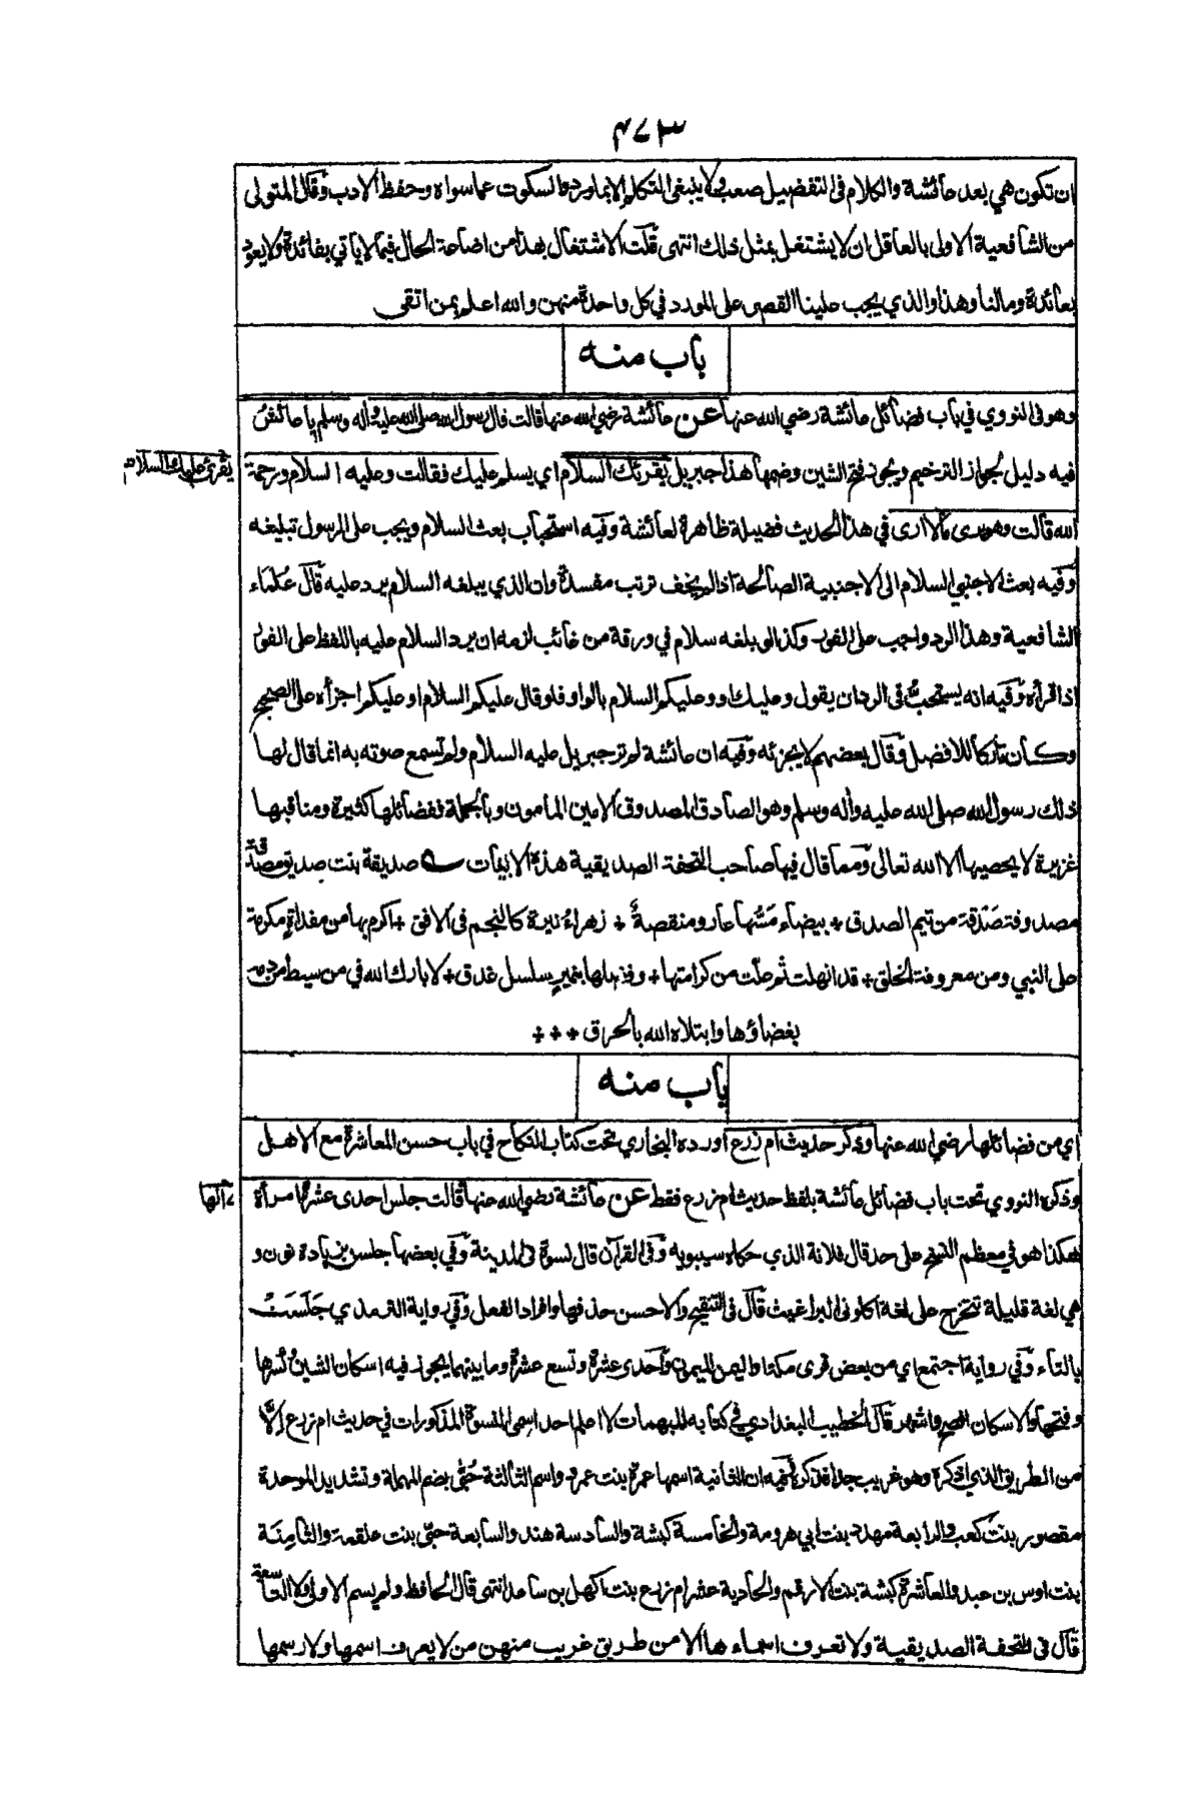 ٤٧٣
ان تكون هي بعد عائشة والكلام فى التفضيل صعب ولا ينبغي التكلم الا بما ورد والسكوت عما سواه وحفظ الادب وقال المتولى
من الشافعية الاولى بالعاقل ان لا يشتغل بمثل ذلك انتهى قلت الاشتغال بهذا من اضاعة الحال فيما لا ياتي بفائدة ولا يعود
بعائدة وما لنا وهذا والذي يجب علينا القصر على المورد في كل واحدة منهن والله اعلم بمن اتقى
باب منه
وهو فى النووي في باب فضائل عائشة رضي الله عنها عن عائشة رضي الله عنها قالت قال رسول الله صلى الله عليه وآله وسلم يا عائش
فيه دليل لجواز الترخيم ويجوز فتح الشين وضمها هذا جبريل يقرئك السلام اي يسلم عليك فقالت وعليه السلام ورحمة
يقرئ عليك السلام
الله قالت وهو يرى ما لا ارى في هذا الحديث فضيلة ظاهرة لعائشة وفيه استحباب بعث السلام ويجب على الرسول تبليغه
وفيه بعث الاجنبي السلام الى الاجنبية الصالحة اذا لم يخف ترتب مفسدة وان الذي يبلغه السلام يرد عليه قال علماء
الشافعية وهذا الرد واجب على الفور وكذا لو بلغه سلام في ورقة من غائب لزمه ان يرد السلام عليه باللفظ على الفور
اذا قرأه وفيه انه يستحب فى الرد ان يقول وعليك او وعليكم السلام بالواو فلو قال عليكم السلام او عليكم اجزأه على الصحيح
وكان تاركا للافضل وقال بعضهم لا يجزئه وفيه ان عائشة لم تر جبريل عليه السلام ولم تسمع صوته به انما قال لها
ذلك رسول الله صلى الله عليه وآله وسلم وهو الصادق المصدوق الامين المامون وبالجملة ففضائلها كثيرة ومناقبها
غزيرة لا يحصيها الا الله تعالى ومما قال فيها صاحب التحفة الصديقية هذه الابيات صديقة بنت صديق مصدقة
مصدوقة صدقة من تيم الصدق + بيضاء مسها عار ومنقصة + زهراء نيرة كالنجم فى الافق + اكرم بها من مفداة مكرمة
على النبي ومن معروفة الخلق + قد انهلت ثم علت من كرامتها + بنمير سلسل غدق + لا بارك الله في من سيط من دمه
بغضاؤها وابتلاه الله بالحرق + + +
باب منه
اي من فضائلها رضي الله عنها وذكر حديث ام زرع اورده البخاري تحت كتاب النكاح في باب حسن المعاشرة مع الاهل
وذكره النووي تحت باب فضائل عائشة بلفظ حديث ام زرع فقط عن عائشة رضي الله عنها قالت جلس احدى عشرة امرأة
انها
هكذا هو في معظم النسخ على حد قال فلانة الذي حكاه سيبويه وفى القرآن قال نسوة فى المدينة وفي بعضها جلسن بزيادة نون و
هي لغة قليلة تتخرج على لغة اكلونى البراغيث قال فى التنقيح والاحسن حذفها وافراد الفعل وفي رواية الترمذي جلست
بالتاء وفي رواية اجتمع اي من بعض قرى مكة او اليمن واحدى عشرة وتسع عشرة وما بينهما يجوز فيه اسكان الشين وكسرها
وفتحها والاسكان افصح واشهر قال الخطيب البغدادي في كتابه المبهمات لا اعلم احدا سمى النسوة المذكورات في حديث ام زرع إلا
من الطريق الذي اذكره وهو غريب جدا فذكره وفيه ان الثانية اسمها عمرة بنت عمرو واسم الثالثة حبى بضم المهملة وتشديد الموحدة
مقصور بنت كعب والرابعة مهدد بنت ابي هرومة والخامسة كبشة والسادسة هند والسابعة حبى بنت علقمة والثامنة
بنت اوس بن عبد والعاشرة كبشة بنت الارقم والحادية عشر ام زرع بنت اكهل بن ساعد انتهى قال الحافظ ولم يسم الاولى ولا التاسعة
قال فى التحفة الصديقية ولا تعرف اسماءها الا من طريق غريب منهن من لا يعرف اسمها ولا رسمها